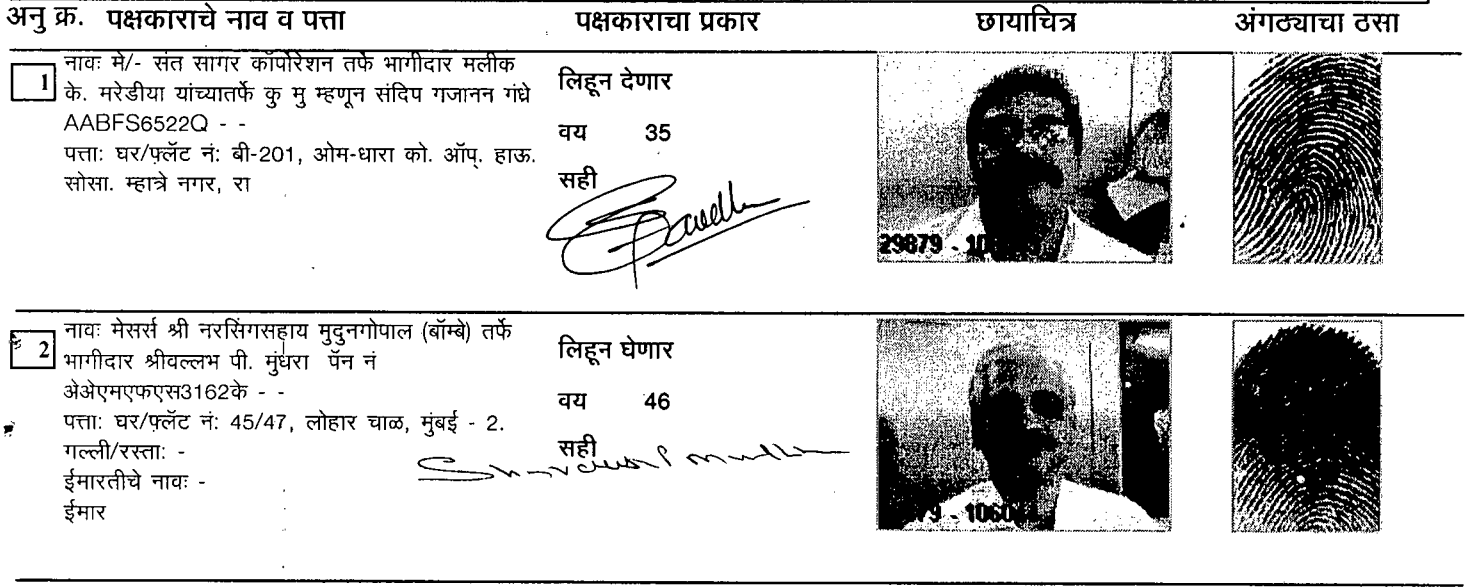 अनु क्र. पक्षकाराचे नाव व पत्ता पक्षकाराचा प्रकार छायाचित्र अंगठ्याचा ठसा
1
नावः मे/- संत सागर कॉर्पोरेशन तर्फे भागीदार मलीक
के. मरेडीया यांच्यातर्फे कु मु म्हणून संदिप गजानन गंध्रे
AABFS6522Q - -
पत्ताः घर/फ्लॅट नंः बी-201, ओम-धारा को. ऑप्. हाऊ.
सोसा. म्हात्रे नगर, रा
लिहून देणार
वय 35
सही
29879 -
2
नावः मेसर्स श्री नरसिंगसहाय मुदुनगोपाल (बॉम्बे) तर्फे
भागीदार श्रीवल्लभ पी. मुंधरा पॅन नं
अेअेएमएफएस3162के - -
पत्ताः घर/फ्लॅट नंः 45/47, लोहार चाळ, मुंबई - 2.
गल्ली/रस्ताः -
ईमारतीचे नावः -
ईमार
लिहून घेणार
वय 46
सही